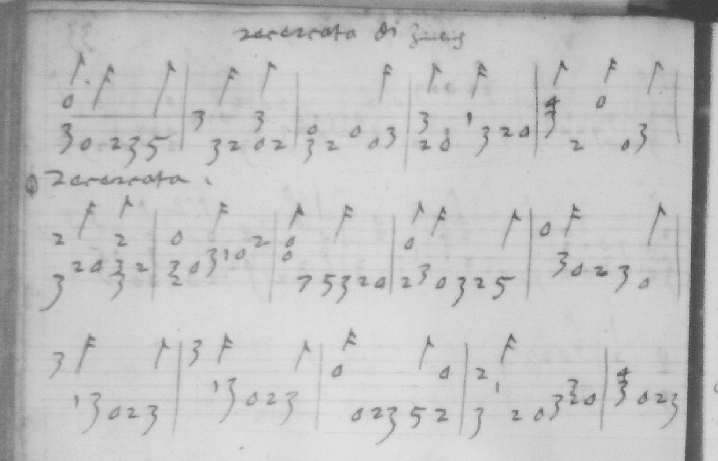 zecercata di
3 0 2 3 5 | 3 3 2 0 2 | 0 3 2 0 0 3 | 3 2 0 1 3 2 0 | 4 3 2 0 0 3
zecercata.
2 3 2 0 2 3 3 2 | 0 3 2 0 3 1 0 2 | 0 0 7 5 3 2 0 | 0 2 3 0 3 2 5 | 0 3 0 2 3 0
3 1 3 0 2 3 | 3 1 3 0 2 3 | 0 0 2 3 5 2 0 | 2 3 1 2 0 3 3 2 0 | 4 3 0 2 3